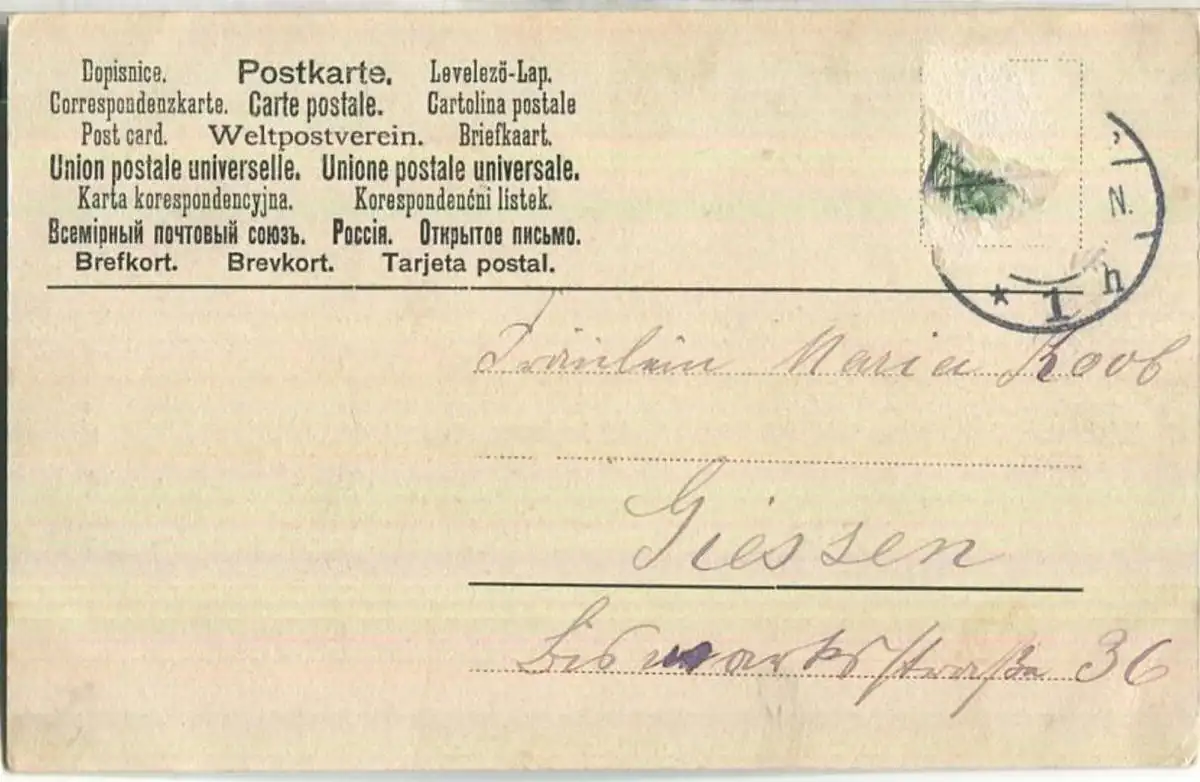 Dopisnice. Postkarte. Levelezö-Lap.
Correspondenzkarte. Carte postale. Cartolina postale
Post card. Weltpostverein. Briefkaart.
Union postale universelle. Unione postale universale.
Karta korespondencyjna. Korespondenćni listek.
Всемірный почтовый союзъ. Россія. Открытое письмо.
Brefkort. Brevkort. Tarjeta postal.
N.
* 1 h
Fräulein Maria Koob
Giessen
Bismarksstraße 36